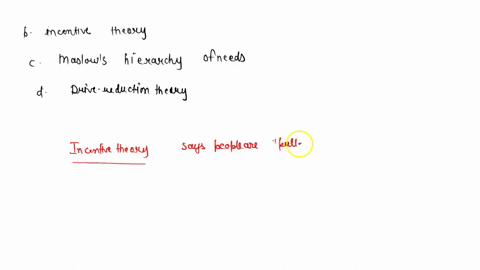 b. incentive theory
c. Maslow's hierarchy of needs
d. Drive-reduction theory
Incentive theory says people are "pull-